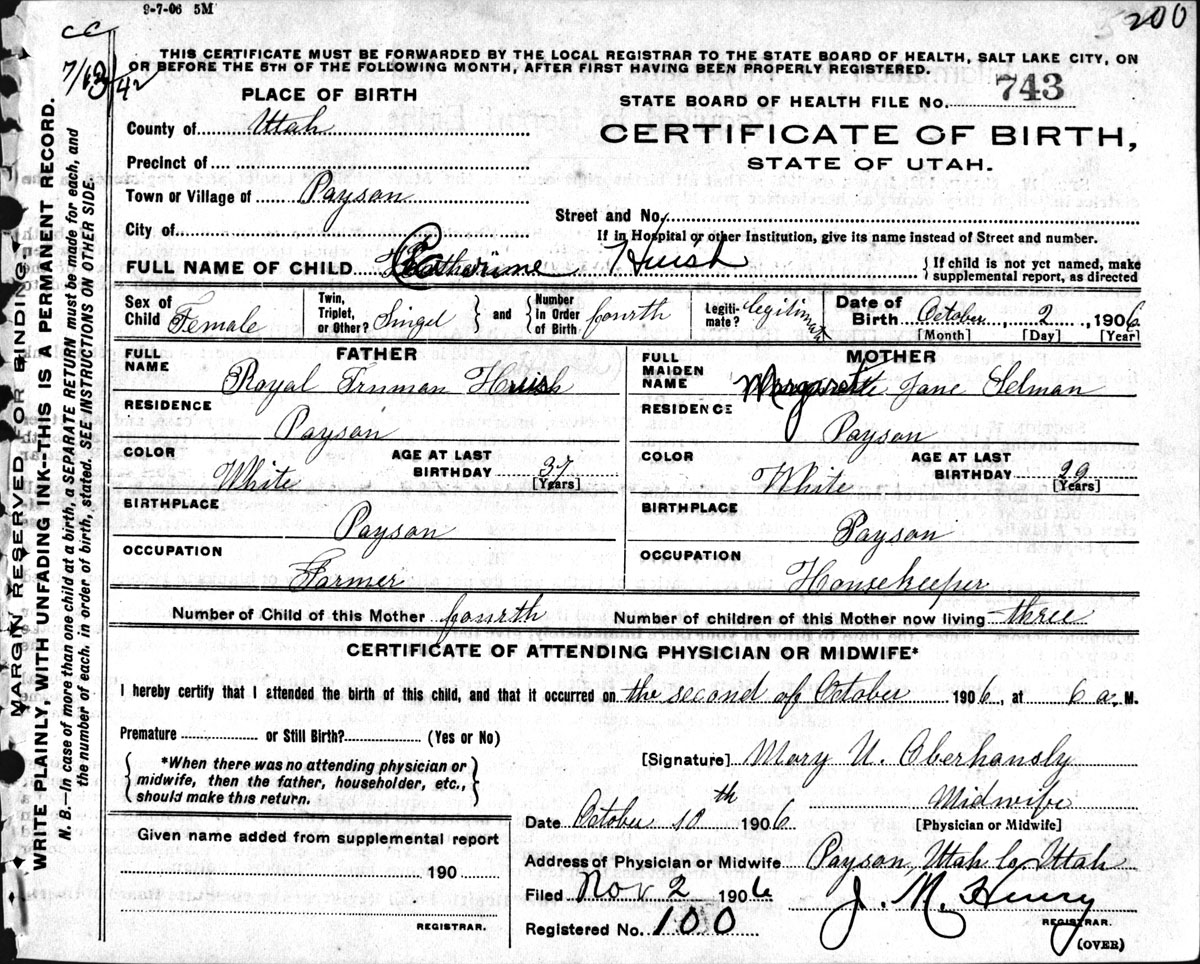 9-7-06 5M
200
CC
7/13/42
THIS CERTIFICATE MUST BE FORWARDED BY THE LOCAL REGISTRAR TO THE STATE BOARD OF HEALTH, SALT LAKE CITY, ON
OR BEFORE THE 5TH OF THE FOLLOWING MONTH, AFTER FIRST HAVING BEEN PROPERLY REGISTERED.
MARGIN RESERVED FOR BINDING
WRITE PLAINLY, WITH UNFADING INK--THIS IS A PERMANENT RECORD.
N. B.—In case of more than one child at a birth, a SEPARATE RETURN must be made for each, and
the number of each, in order of birth, stated. SEE INSTRUCTIONS ON OTHER SIDE.
PLACE OF BIRTH
STATE BOARD OF HEALTH FILE No. 743
County of Utah
CERTIFICATE OF BIRTH,
STATE OF UTAH.
Precinct of
Town or Village of Payson
Street and No.
City of
If in Hospital or other Institution, give its name instead of Street and number.
FULL NAME OF CHILD Catherine Huish
If child is not yet named, make
supplemental report, as directed
Sex of Child Female
Twin, Triplet, or Other? Singel
and
Number in Order of Birth fourth
Legiti- mate? legitimate
Date of Birth October, 2, 1906
[Month] [Day] [Year]
FATHER
FULL NAME Royal Truman Huish
RESIDENCE Payson
COLOR White
AGE AT LAST BIRTHDAY 37
[Years]
BIRTHPLACE Payson
OCCUPATION Farmer
MOTHER
FULL MAIDEN NAME Margaret Jane Selman
RESIDENCE Payson
COLOR White
AGE AT LAST BIRTHDAY
[Years]
BIRTHPLACE Payson
OCCUPATION Housekeeper
Number of Child of this Mother fourth
Number of children of this Mother now living three
CERTIFICATE OF ATTENDING PHYSICIAN OR MIDWIFE*
I hereby certify that I attended the birth of this child, and that it occurred on the second of October 1906, at 6 a. M.
Premature or Still Birth? (Yes or No)
*When there was no attending physician or
midwife, then the father, householder, etc.,
should make this return.
[Signature] Mary U. Oberhansly
Midwife
[Physician or Midwife]
Date October 10th 1906
Given name added from supplemental report
190
REGISTRAR.
Address of Physician or Midwife Payson, Utah Co Utah
Filed Nov 2 1906
J. M. Henry
REGISTRAR.
Registered No. 100
(OVER)